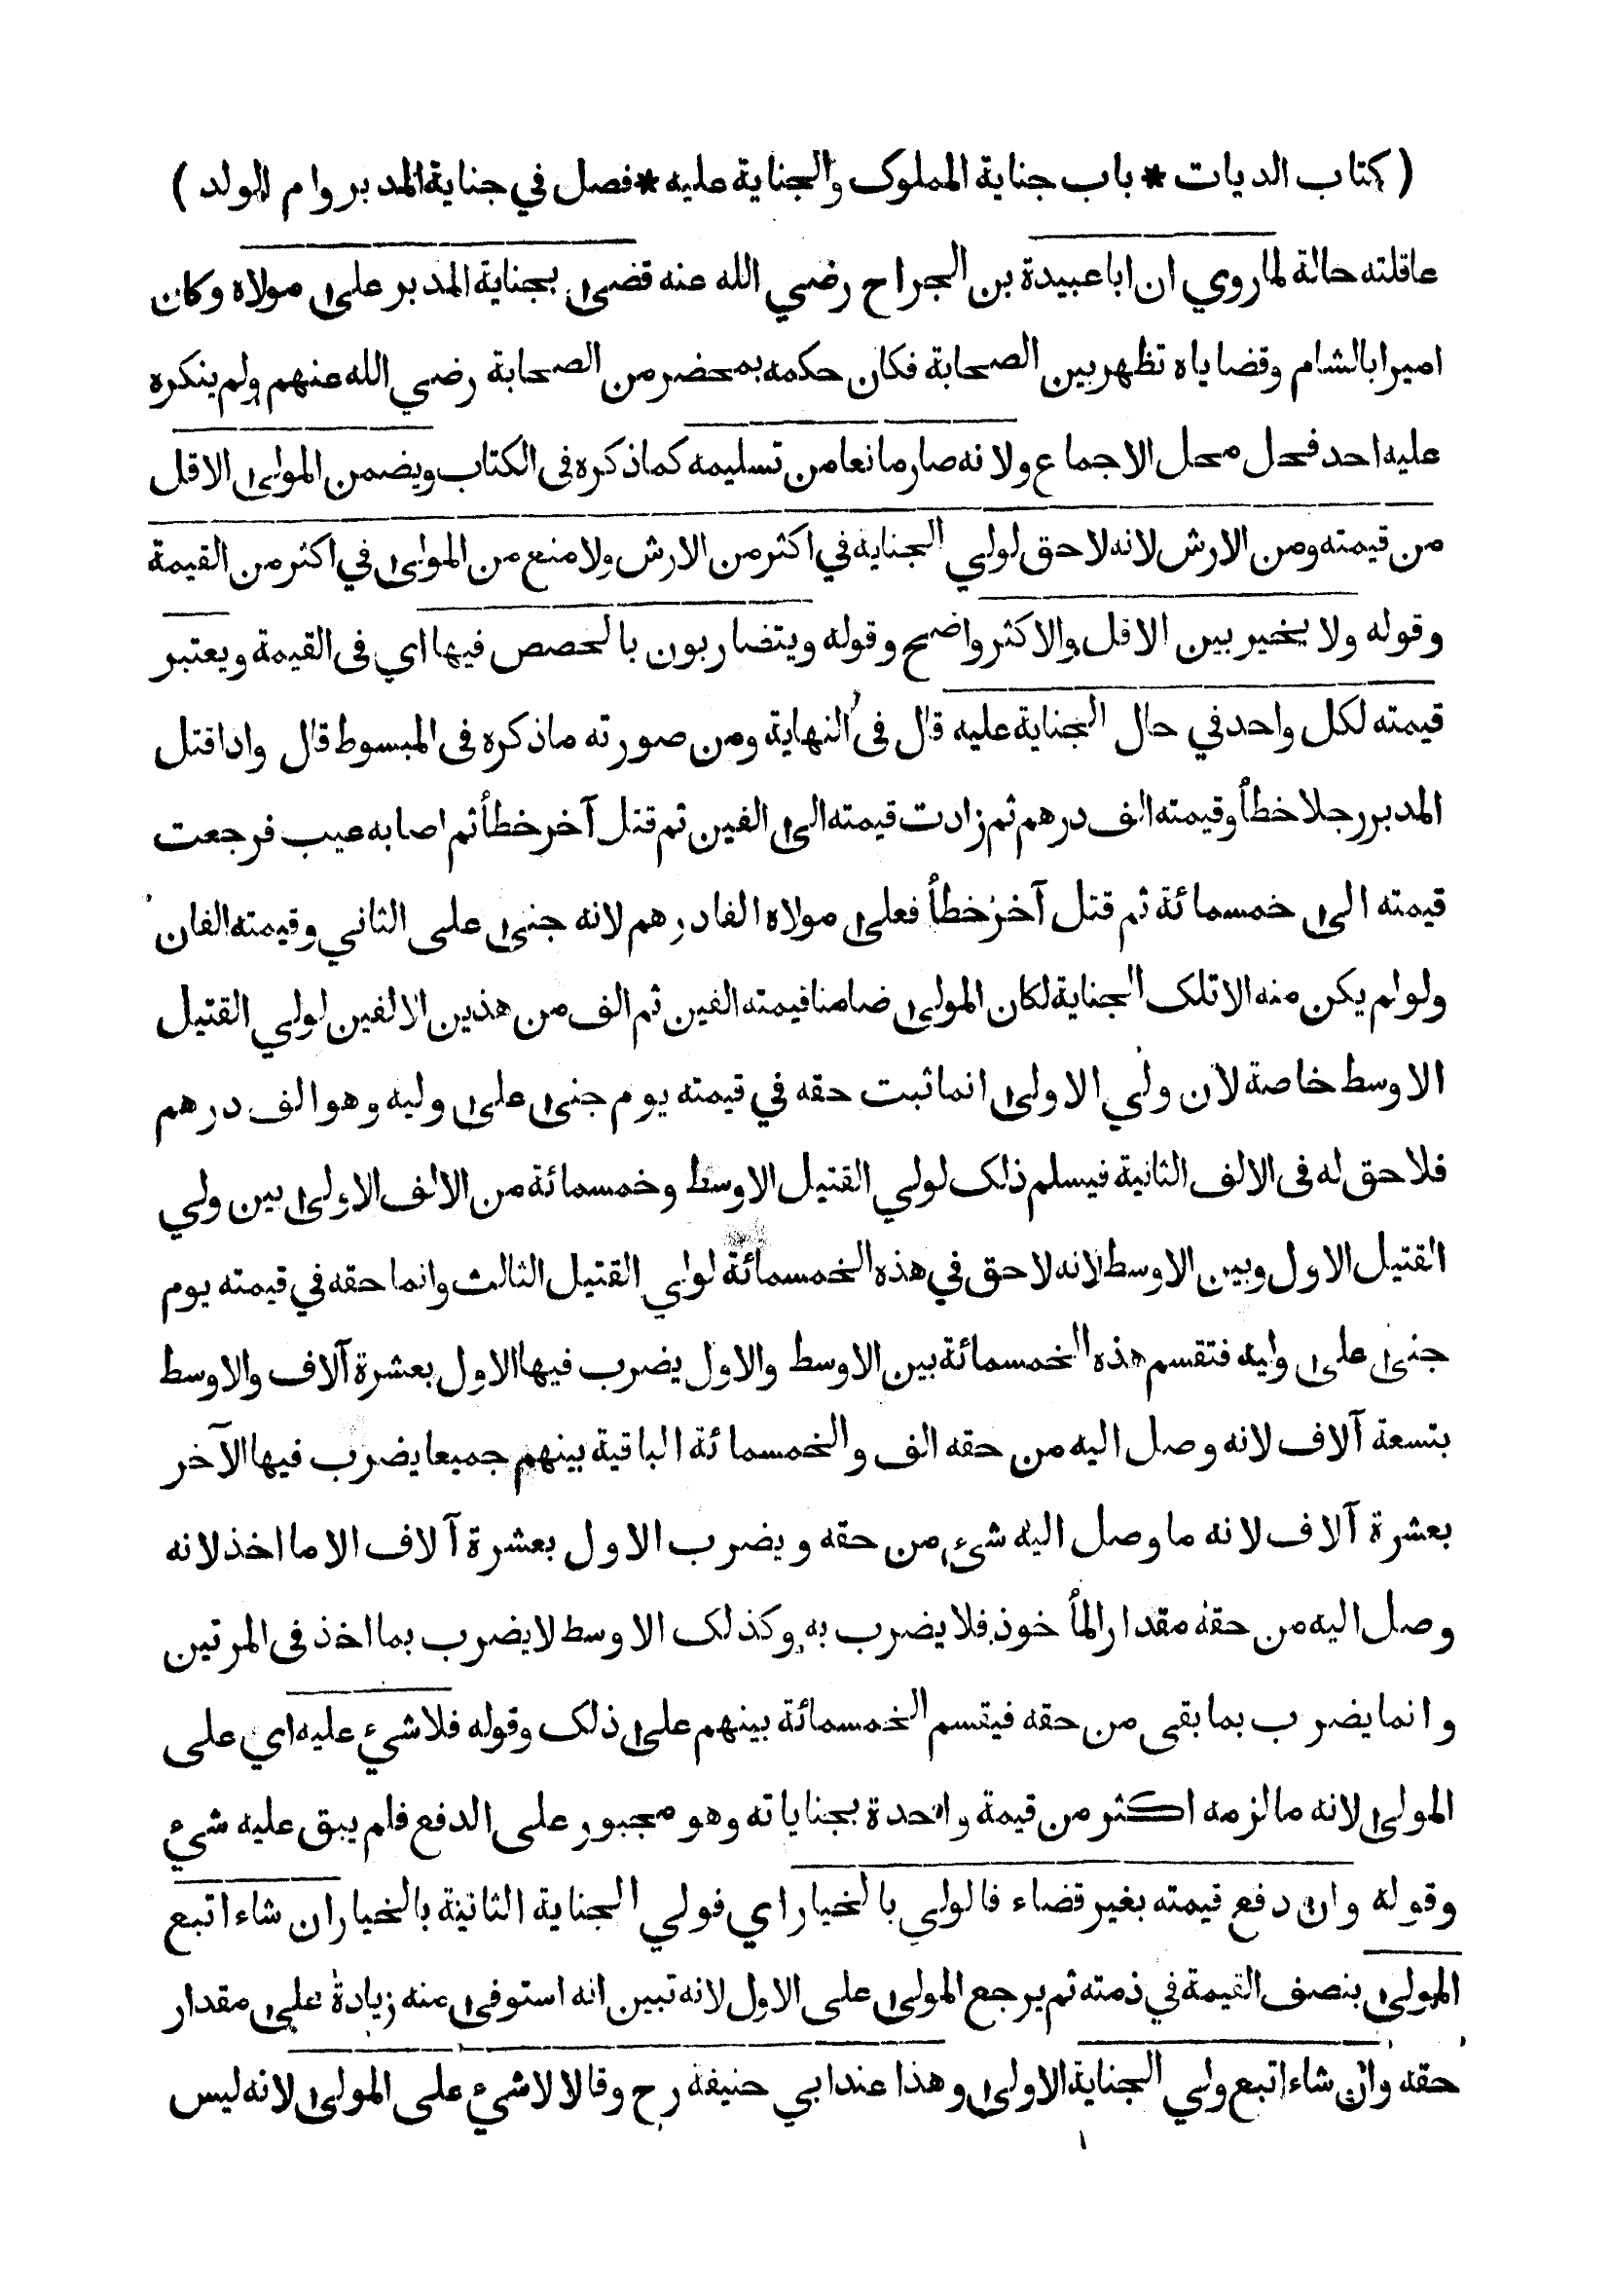 ( كتاب الديات * باب جناية المملوك والجناية عليه * فصل في جناية المدبر وام الولد )
عاقلته حالة لما روي ان ابا عبيدة بن الجراح رضي الله عنه قضى بجناية المدبر على مولاه وكان
اميرا بالشام وقضاياه تظهر بين الصحابة فكان حكمه بمحضر من الصحابة رضي الله عنهم ولم ينكره
عليه احد فحل محل الاجماع ولانه صار مانعا من تسليمه كما ذكره في الكتاب ويضمن المولى الاقل
من قيمته ومن الارش لانه لا حق لولي الجناية في اكثر من الارش ولا منع من المولى في اكثر من القيمة
وقوله ولا يخير بين الاقل والاكثر واضح وقوله ويتضاربون بالحصص فيها اي في القيمة ويعتبر
قيمته لكل واحد في حال الجناية عليه قال في النهاية ومن صورته ما ذكره في المبسوط قال واذا قتل
المدبر رجلا خطأ وقيمته الف درهم ثم زادت قيمته الى الفين ثم قتل آخر خطأ ثم اصابه عيب فرجعت
قيمته الى خمسمائة ثم قتل آخر خطأ فعلى مولاه الفا درهم لانه جنى على الثاني وقيمته الفان
ولو لم يكن منه الا تلك الجناية لكان المولى ضامنا قيمته الفين ثم الف من هذين الالفين لولي القتيل
الاوسط خاصة لان ولي الاولى انما ثبت حقه في قيمته يوم جنى على وليه وهو الف درهم
فلا حق له في الالف الثانية فيسلم ذلك لولي القتيل الاوسط وخمسمائة من الالف الاولى بين ولي
القتيل الاول وبين الاوسط لانه لا حق في هذه الخمسمائة لولي القتيل الثالث وانما حقه في قيمته يوم
جنى على وليه فتقسم هذه الخمسمائة بين الاوسط والاول يضرب فيها الاول بعشرة آلاف والاوسط
بتسعة آلاف لانه وصل اليه من حقه الف والخمسمائة الباقية بينهم جميعا يضرب فيها الآخر
بعشرة آلاف لانه ما وصل اليه شيء من حقه ويضرب الاول بعشرة آلاف الا ما اخذ لانه
وصل اليه من حقه مقدار المأخوذ فلا يضرب به وكذلك الاوسط لا يضرب بما اخذ في المرتين
وانما يضرب بما بقى من حقه فيقسم الخمسمائة بينهم على ذلك وقوله فلا شيء عليه اي على
المولى لانه ما لزمه اكثر من قيمة واحدة بجناياته وهو مجبور على الدفع فلم يبق عليه شيء
وقوله وان دفع قيمته بغير قضاء فالولي بالخيار اي فولي الجناية الثانية بالخيار ان شاء اتبع
المولى بنصف القيمة في ذمته ثم يرجع المولى على الاول لانه تبين انه استوفى منه زيادة على مقدار
حقه وان شاء اتبع ولي الجناية الاولى وهذا عند ابي حنيفة رح وقالا لا شيء على المولى لانه ليس